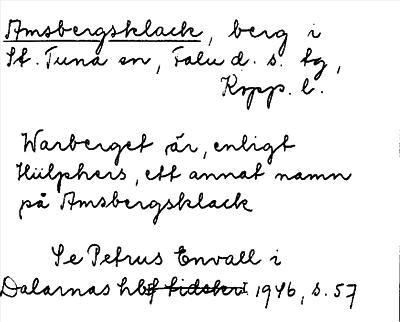 Amsbergsklack, berg i
St. Tuna sn, Falu d. s. tg,
Kopp. l.
Warberget är, enligt
Hülphers, ett annat namn
på Amsbergsklack
Se Petrus Envall i
Dalarnas hbf tidskr 1946, s. 57